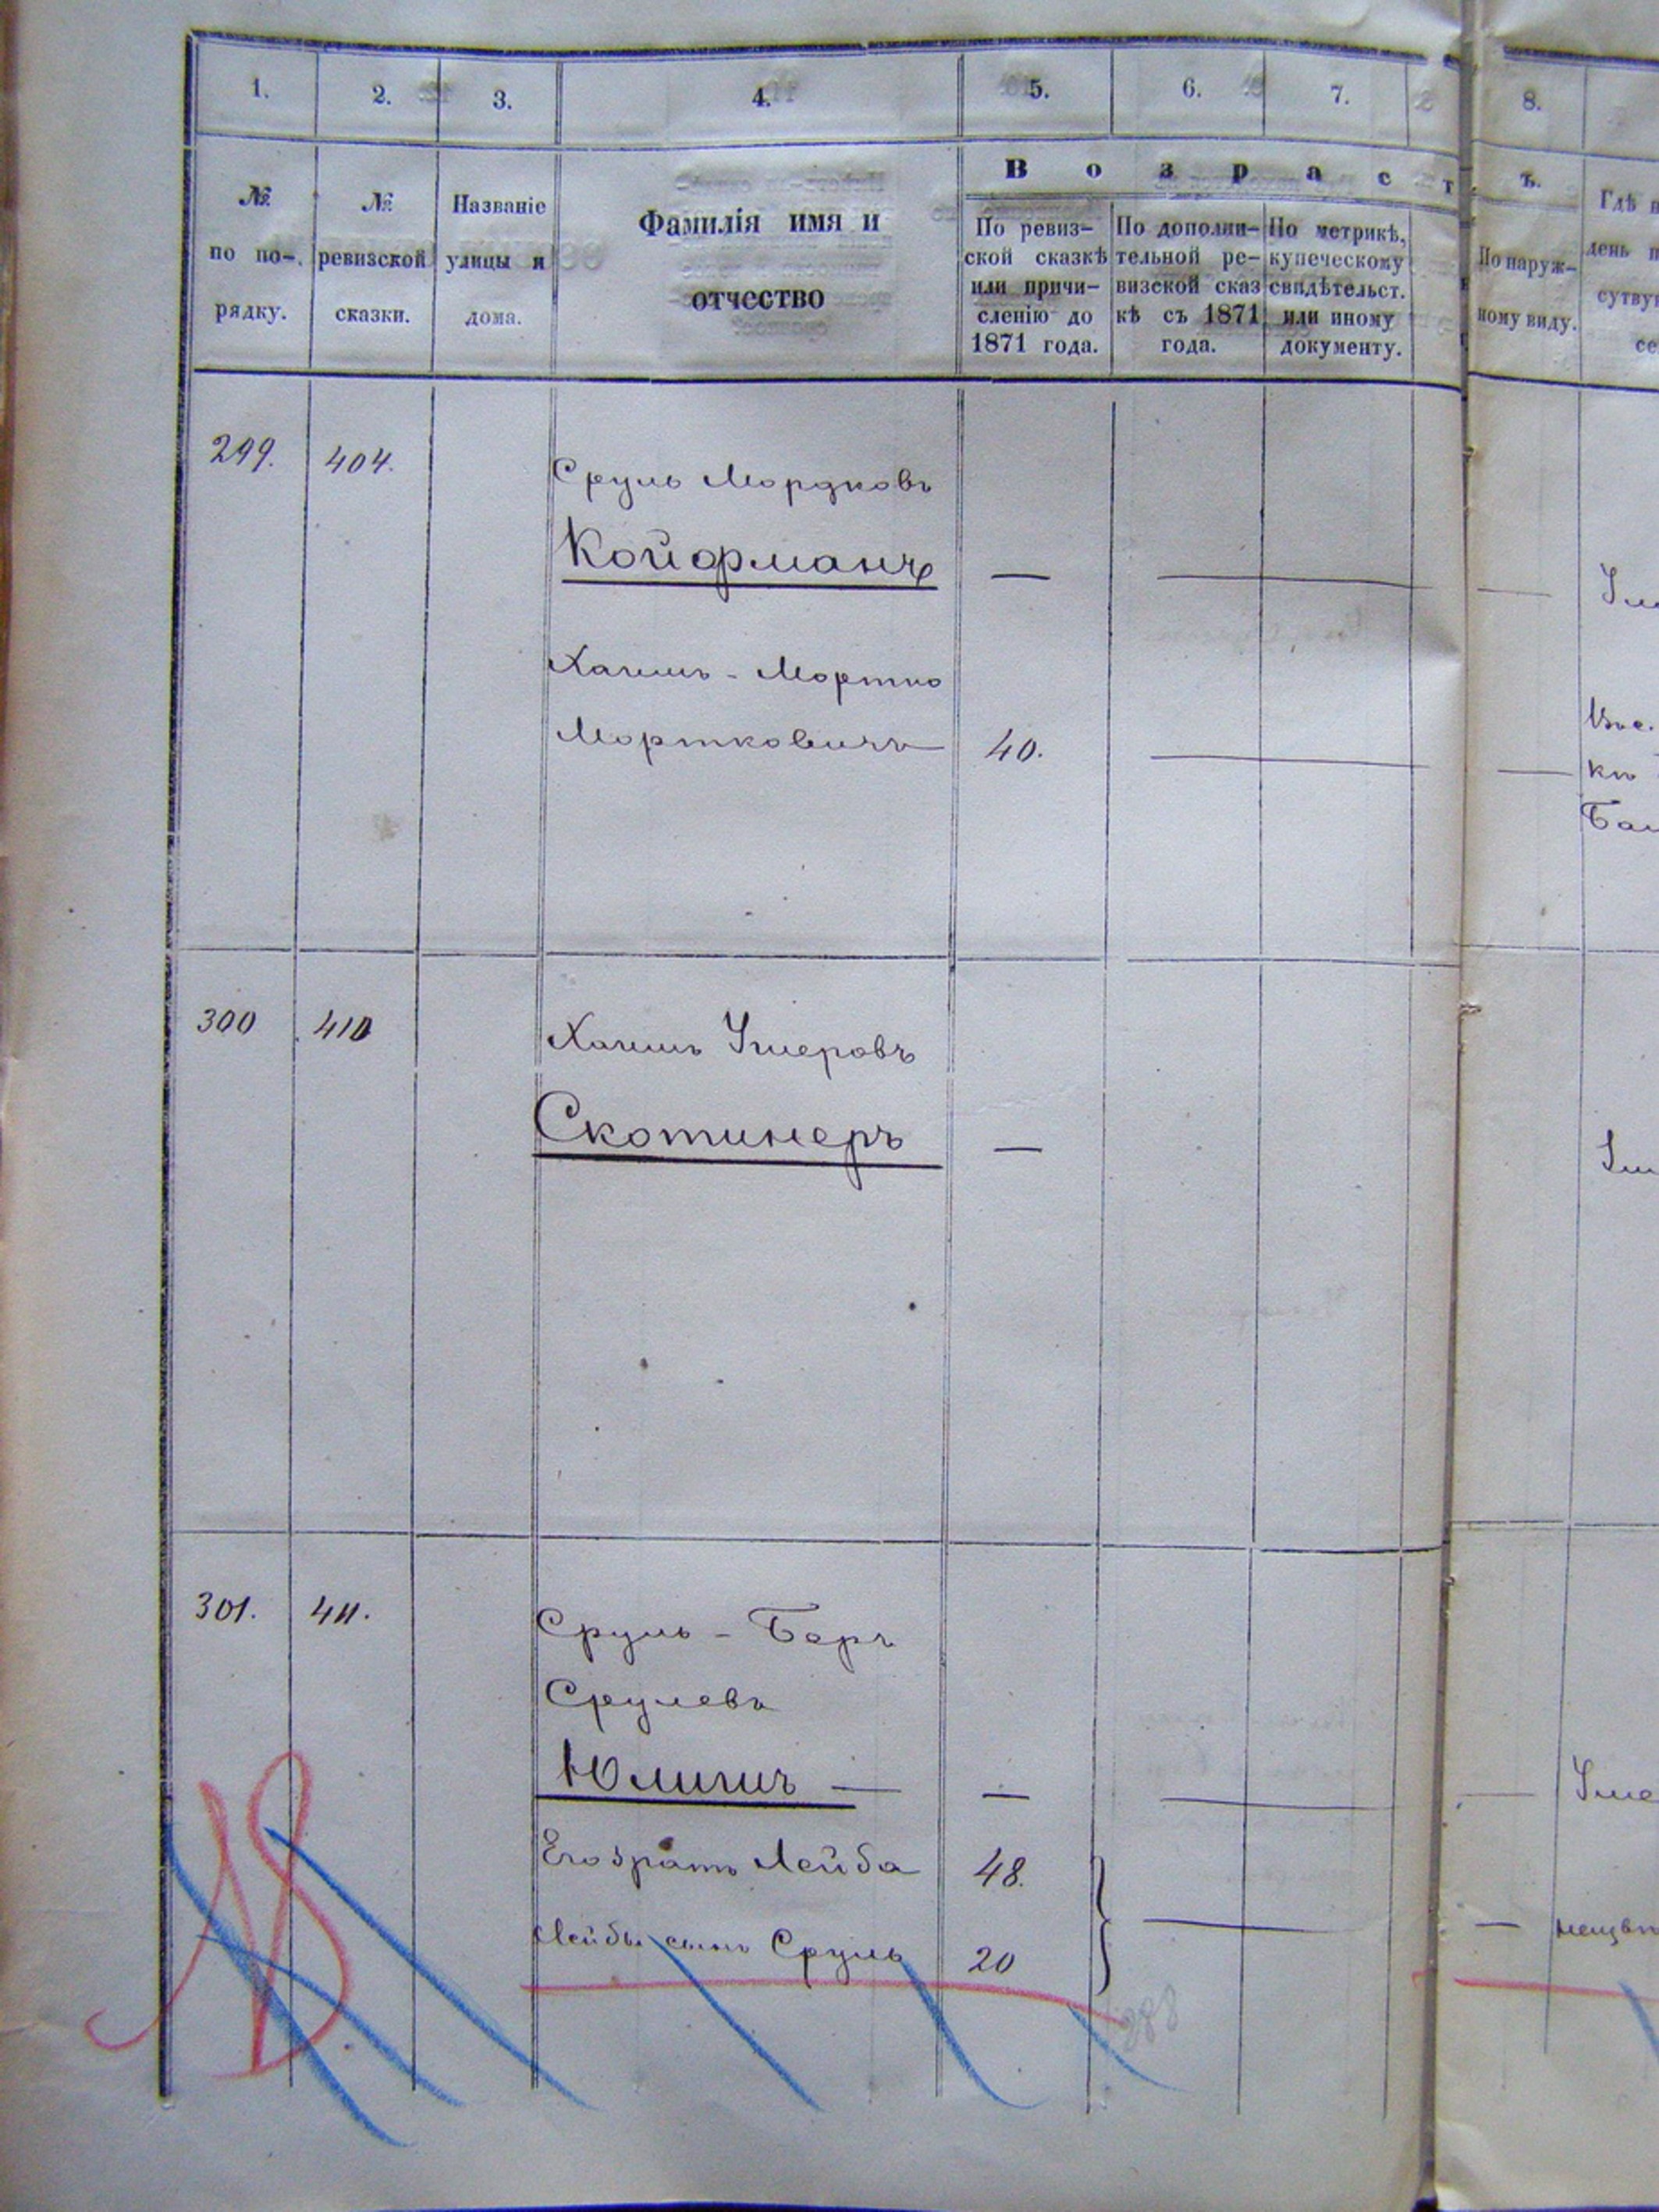 1. 2. 3. 4. 5. 6. 7. 8.
В о з р а с т ъ.
№ по по- рядку.
№ ревизской сказки.
Названіе улицы и дома.
Фамилія имя и
отчество
По ревиз-
ской сказкѣ
или причи-
сленію до
1871 года.
По дополни-
тельной ре-
визской сказ
кѣ съ 1871
года.
По метрикѣ,
купеческому
свидѣтельст.
или иному
документу.
По наруж-
ному виду.
Гдѣ н
день п
сутву
се
299. 404. Сруль Мордковъ
Койфманъ — — —
Хаимъ - Мортко
Мортковичъ 40. — —
къ
300 410 Хаимъ Умеровъ
Скотинеръ —
301. 411. Сруль - Беръ
Срулевъ
Юлишъ — — — —
Его братъ Лейба 48.
Лейбы сынъ Сруль 20 — —